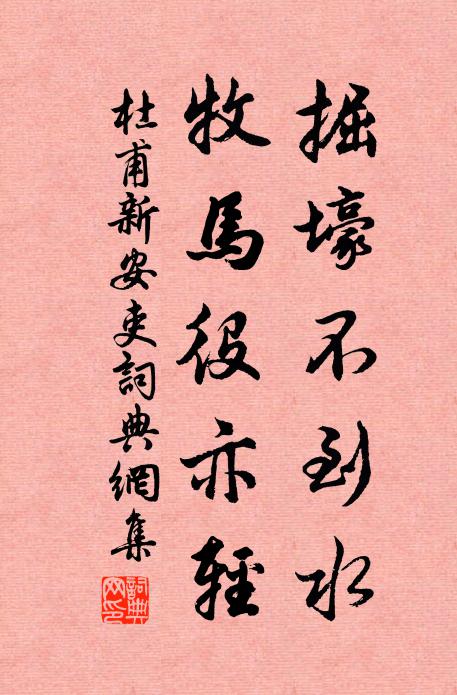 掘壕不到水
牧馬役亦輕
杜甫新安吏詞典網集
詞典网印